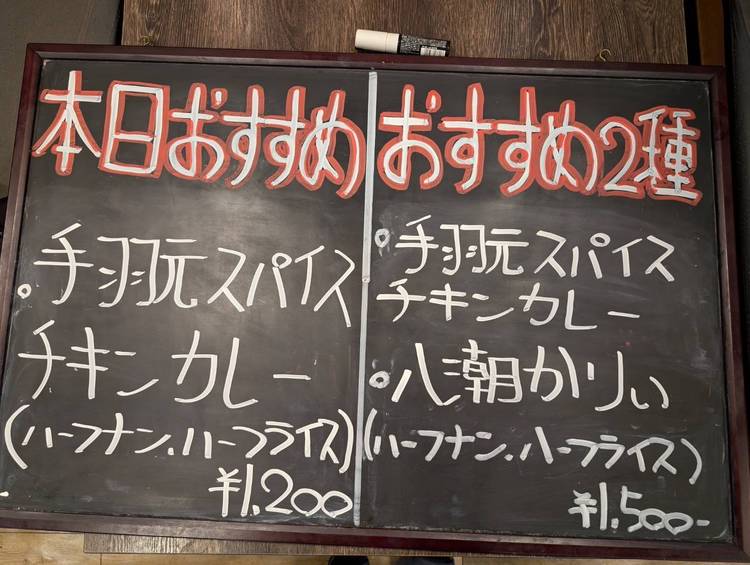 本日おすすめ
。手羽元スパイス
チキンカレー
(ハーフナン、ハーフライス)
¥1,200
おすすめ2種
。手羽元スパイス
チキンカレー
。八潮かりぃ
(ハーフナン、ハーフライス)
¥1,500-